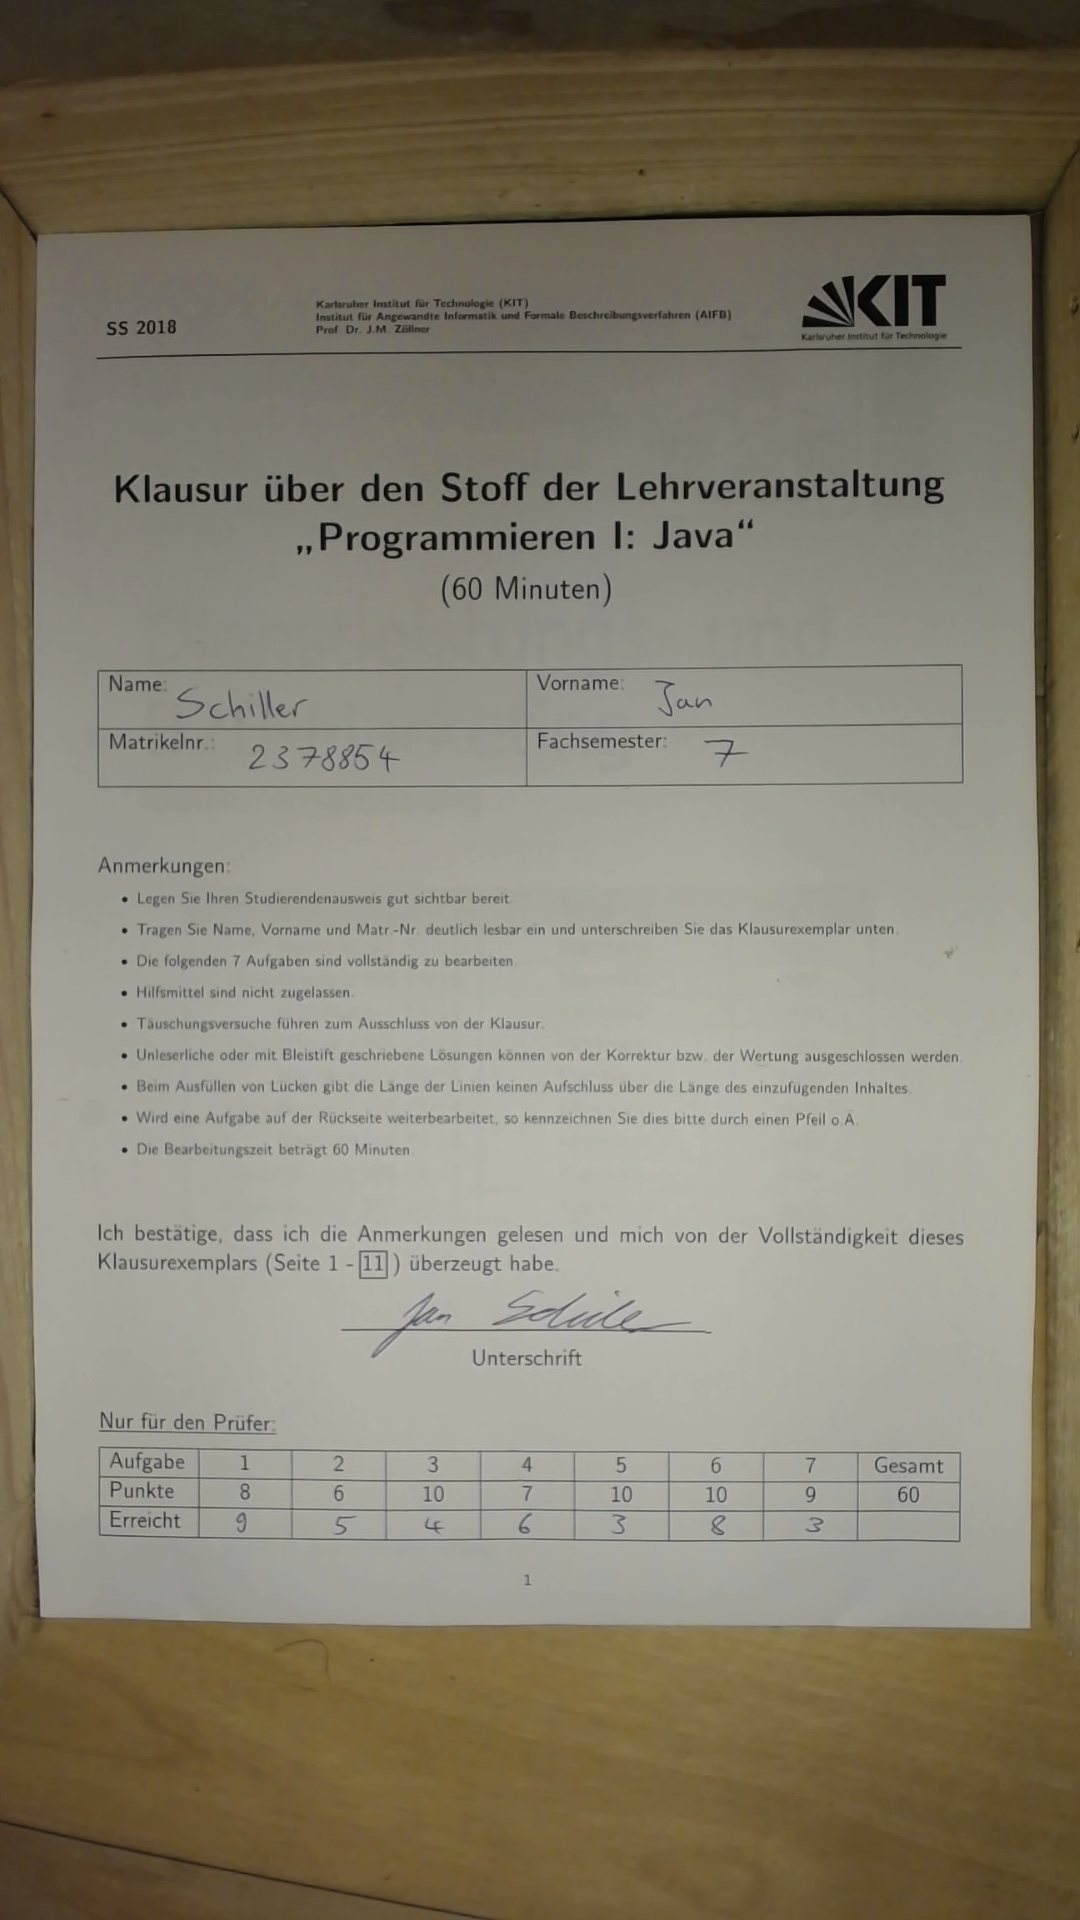 SS 2018
Karlsruher Institut für Technologie (KIT)
Institut für Angewandte Informatik und Formale Beschreibungsverfahren (AIFB)
Prof. Dr. J.M. Zöllner
KIT
Karlsruher Institut für Technologie
Klausur über den Stoff der Lehrveranstaltung
„Programmieren I: Java“
(60 Minuten)
Name: Schiller Vorname: Jan
Matrikelnr.: 2378854 Fachsemester: 7
Anmerkungen:
• Legen Sie Ihren Studierendenausweis gut sichtbar bereit.
• Tragen Sie Name, Vorname und Matr.-Nr. deutlich lesbar ein und unterschreiben Sie das Klausurexemplar unten.
• Die folgenden 7 Aufgaben sind vollständig zu bearbeiten.
• Hilfsmittel sind nicht zugelassen.
• Täuschungsversuche führen zum Ausschluss von der Klausur.
• Unleserliche oder mit Bleistift geschriebene Lösungen können von der Korrektur bzw. der Wertung ausgeschlossen werden.
• Beim Ausfüllen von Lücken gibt die Länge der Linien keinen Aufschluss über die Länge des einzufügenden Inhaltes.
• Wird eine Aufgabe auf der Rückseite weiterbearbeitet, so kennzeichnen Sie dies bitte durch einen Pfeil o.Ä.
• Die Bearbeitungszeit beträgt 60 Minuten.
Ich bestätige, dass ich die Anmerkungen gelesen und mich von der Vollständigkeit dieses
Klausurexemplars (Seite 1 - 11) überzeugt habe.
Jan Schiller
Unterschrift
Nur für den Prüfer:
Aufgabe 1 2 3 4 5 6 7 Gesamt
Punkte 8 6 10 7 10 10 9 60
Erreicht 9 5 4 6 3 8 3
1